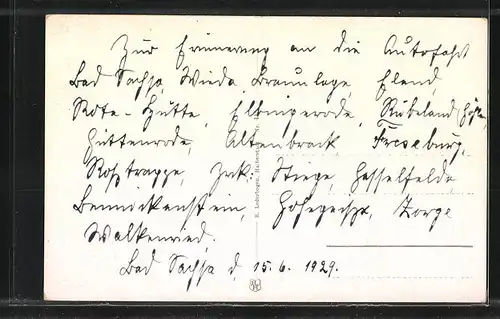 Zur Erinnerung an die Autofahrt
Bad Sachsa, Wieda, Braunlage, Elend,
Rote-Hütte, Elbingerode, Rübeland, Höhle,
Hüttenrode, Altenbrack, Treseburg,
Roßtrappe, Zurk: Stiege, Hasselfelde,
Benneckenstein, Hohegeiß, Zorge
Walkenried.
Bad Sachsa d. 15.6.1929.
R. Lederbogen, Halberstadt